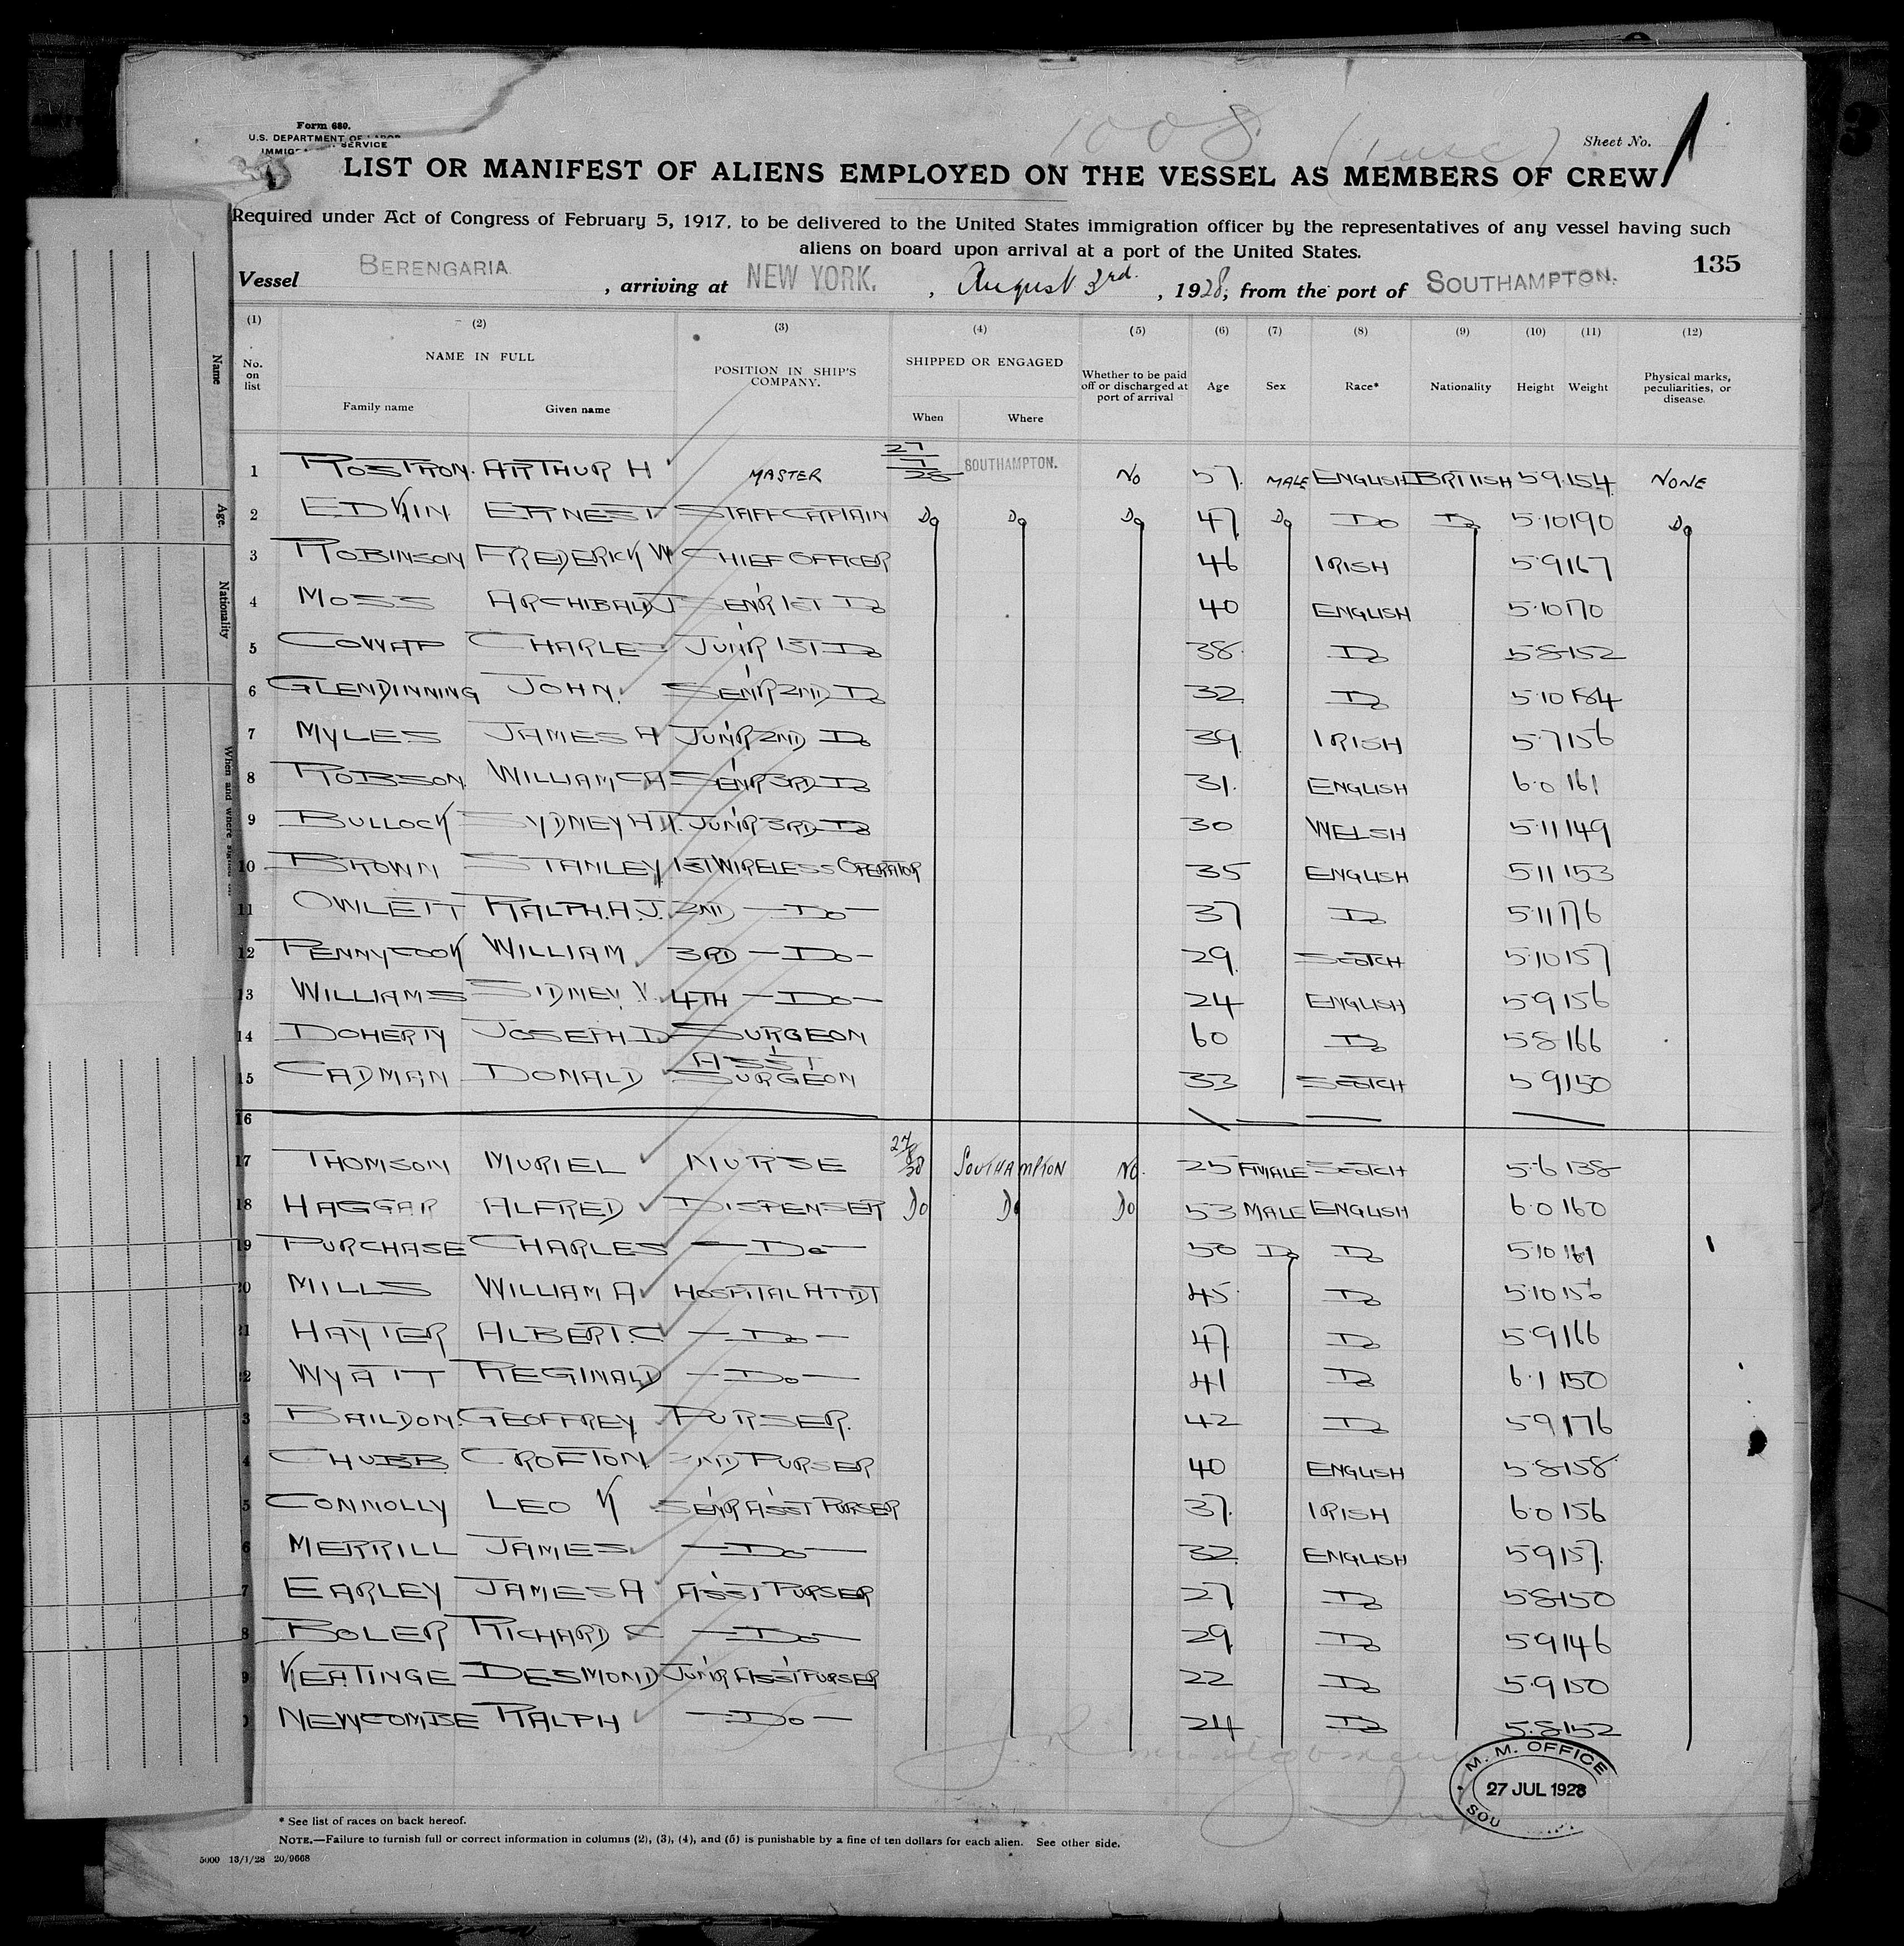 Form 680.
U.S. DEPARTMENT OF LABOR
IMMIGRATION SERVICE
1008
Sheet No. 1
LIST OR MANIFEST OF ALIENS EMPLOYED ON THE VESSEL AS MEMBERS OF CREW
Required under Act of Congress of February 5, 1917, to be delivered to the United States immigration officer by the representatives of any vessel having such
aliens on board upon arrival at a port of the United States.
135
Vessel BERENGARIA. , arriving at NEW YORK. , August 3rd. , 1928, from the port of SOUTHAMPTON.
(1) (2) (3) (4) (5) (6) (7) (8) (9) (10) (11) (12)
No. on list NAME IN FULL POSITION IN SHIP'S COMPANY. SHIPPED OR ENGAGED Whether to be paid off or discharged at port of arrival Age Sex Race* Nationality Height Weight Physical marks, peculiarities, or disease.
Family name Given name When Where
1 ROSTRON. ARTHUR H MASTER 27/7/28 SOUTHAMPTON. NO 57. MALE ENGLISH BRITISH 5.9 154 NONE
2 EDKIN ERNEST STAFF CAPTAIN Do Do Do 47 Do Do Do 5.10 190 Do
3 ROBINSON FREDERICK W CHIEF OFFICER 46 IRISH 5.9 167
4 MOSS ARCHIBALD J SEN'R 1ST Do 40 ENGLISH 5.10 170
5 COWAP CHARLES JUN'R 1ST Do 38 Do 5.8 152
6 GLENDINNING JOHN. SEN'R 2ND Do 32 Do 5.10 184
7 MYLES JAMES A JUN'R 2ND Do 39 IRISH 5.7 156
8 ROBSON WILLIAM C H SEN'R 3RD Do 31. ENGLISH 6.0 161
9 BULLOCK SYDNEY H JUN'R 3RD Do 30 WELSH 5.11 149
10 BROWN STANLEY 1ST WIRELESS OPERATOR 35 ENGLISH 5.11 153
11 OWLETT RALPH. A. J. 2ND — Do — 37 Do 5.11 176
12 PENNYCOOK WILLIAM 3RD — Do — 29 SCOTCH 5.10 157
13 WILLIAMS SIDNEY V. 4TH — Do — 24 ENGLISH 5.9 156
14 DOHERTY JOSEPH D SURGEON 60 Do 5.8 166
15 CADMAN DONALD ASS'T SURGEON 33 SCOTCH 5.9 150
16
17 THOMSON MURIEL NURSE SOUTHAMPTON NO. 25 FMALE SCOTCH 5.6 138
18 HAGGAR ALFRED DISPENSER Do Do Do 53 MALE ENGLISH 6.0 160
19 PURCHASE CHARLES — Do — 50 Do Do 5.10 161
20 MILLS WILLIAM A HOSPITAL ATTDT 45 Do 5.10 156
21 HAYTER ALBERT. C — Do — 47 Do 5.9 166
2 WYATT REGINALD — Do — 41 Do 6.1 150
3 BAILDON. GEOFFREY PURSER. 42 Do 5.9 176
4 CHUBB CROFTON 2ND PURSER 40 ENGLISH 5.8 158
5 CONNOLLY LEO K SEN'R ASS'T PURSER 37. IRISH 6.0 156
6 MERRILL JAMES — Do — 32 ENGLISH 5.9 157.
7 EARLEY JAMES A ASS'T PURSER 27 Do 5.8 150
8 BOLER RICHARD C — Do — 29 Do 5.9 146
9 KEATINGE DESMOND JUN'R ASS'T PURSER 22 Do 5.9 150
0 NEWCOMBE RALPH — Do — 24 Do 5.8 152
M. M. OFFICE
27 JUL 1928
SOU
* See list of races on back hereof.
NOTE.—Failure to furnish full or correct information in columns (2), (3), (4), and (5) is punishable by a fine of ten dollars for each alien. See other side.
5000 13/1/28 20/9668
Name
Age.
Nationality
When and where